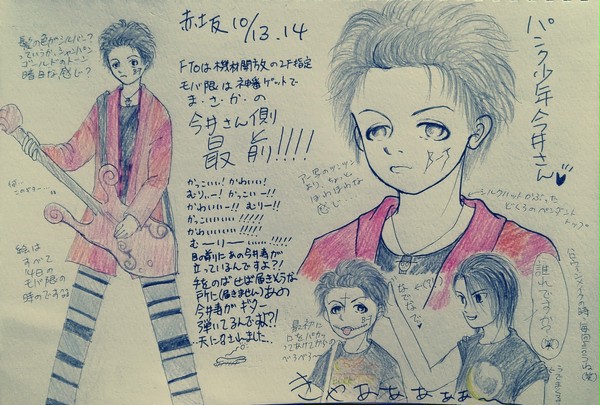 赤坂 10/13.14
FTOは機材開放の2F指定
モバ限は神番ゲットで
ま・さ・か・の
今井さん側
最前!!!!
かっこいい!かわいい!
むりぃー!かっこいー!!
かわいいー!!むりー!!
かっこいいい!!!!!
かわいいいい!!!!!
むーーりーー……!!!!
目の前にあの今井寿が
立っているんですよ?!
手をのばせば届きそうな
所に(届きません)あの
今井寿がギター
弾いてるんですよ?!
…天になされました…
髪の色がシルバー?
っていうか、シャンパン
ゴールドのトーン
暗目な感じ?
絵は
すべて
14日の
モバ限の
時のですよ
パンク少年今井さん
B-T
より、ちょっと
ほわほわな
感じ
←シルクハットかぶった
どくろのペンダント
トップ
誰れですか?(笑)
なでなで♥
B-T
きゃあぁあぁぁ〜